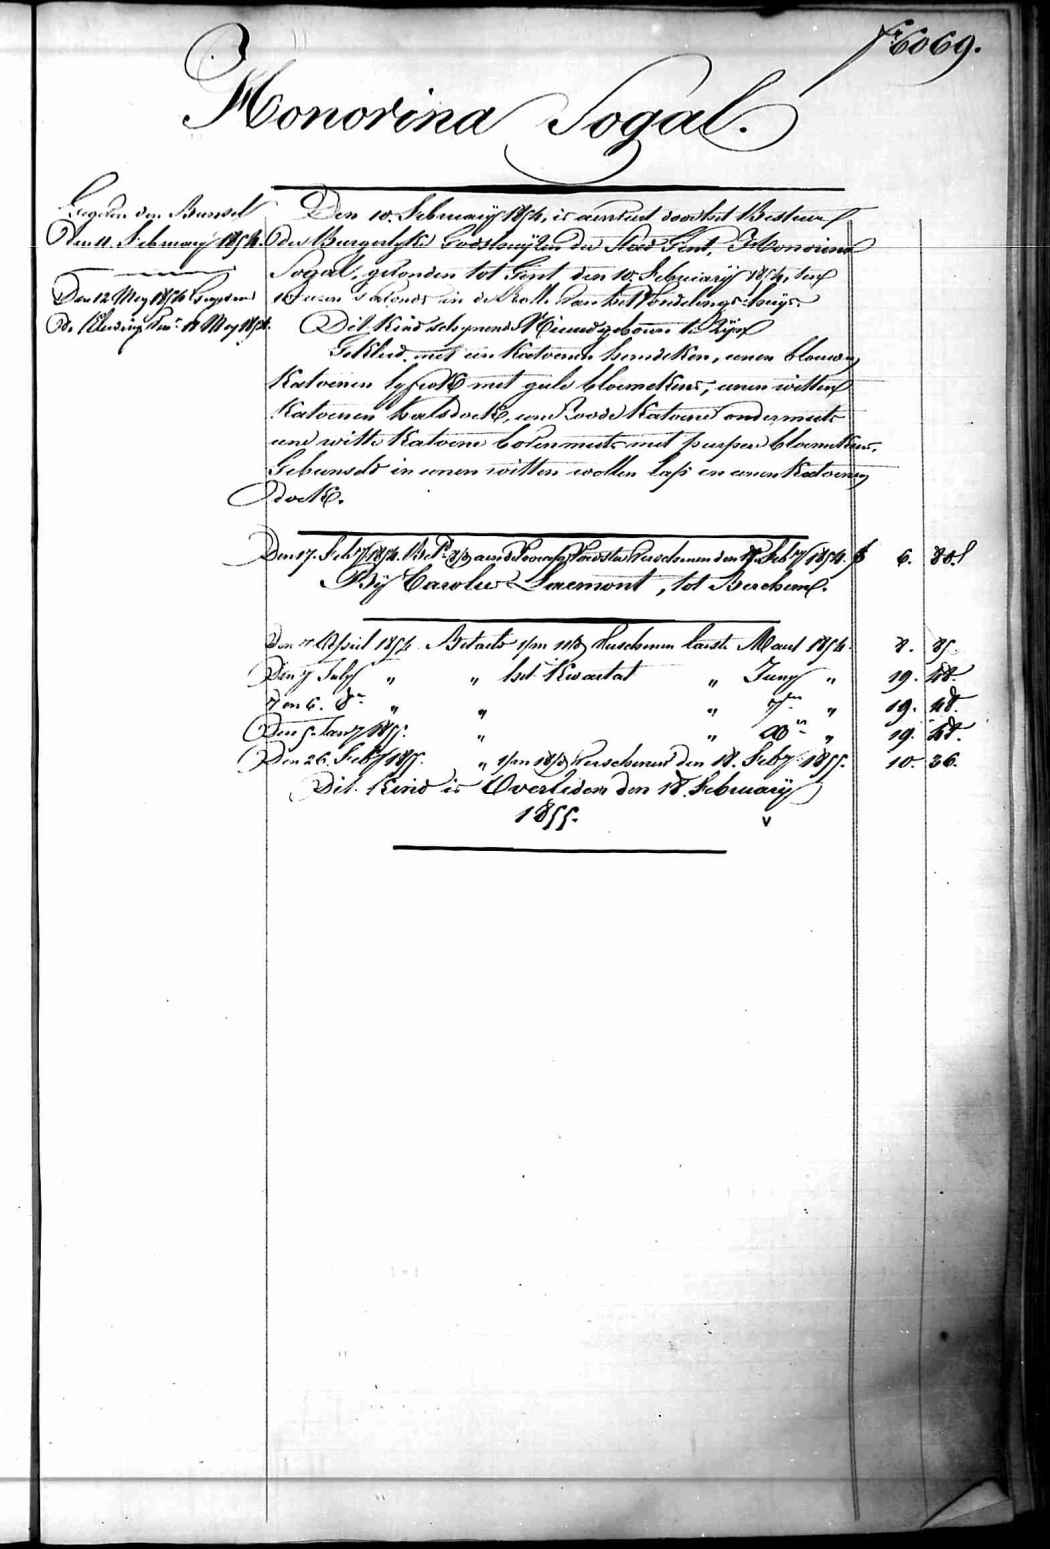 6069.
Honorina Sogal.
Gegeven den Bunsel
Den 11. February 1854.
Den 12 Mey 1854
de Kleeding 12 Mey 1854.
Den 10. February 1854, is aenveerd door het Bestuer
der Burgerlyke Godshuyzen der Stad Gent, Honorina
Sogal, gevonden tot Gent den 10. February 1854, ten
10 uren 's avonds in de Rolle van het Vondelings-huys.
Dit kind schynende Nieuwgeboren te Zyn
Gekleed met een katoenen hemdeken, eenen blauwen
katoenen lyfrok met gele bloemekens, eenen witten
katoenen halsdoek, eene Roode katoene ondermuts
eene witte katoene bovenmuts met purpere bloemekens,
Gebunseld in eenen witten wollen lap en eenen katoenen
doek.
Den 17. Feby 1854. verschenen den Feby 1854. f 6. 80.
By Carolus Laremont, tot Berchem.
Den 7 April 1854 Betaeld verschenen laeste Maert 1854. 8. 85.
Den 7 July " " het Kwartael " Juny " 19. 48.
7en 6. 8er " " " 7er " 19. 48.
Den 5. Jany 1855. " " Xer " 19. 48.
Den 26. Feby 1855. " verschenen den 18. Feby 1855. 10. 36.
Dit Kind is Overleden den 18 February
1855.